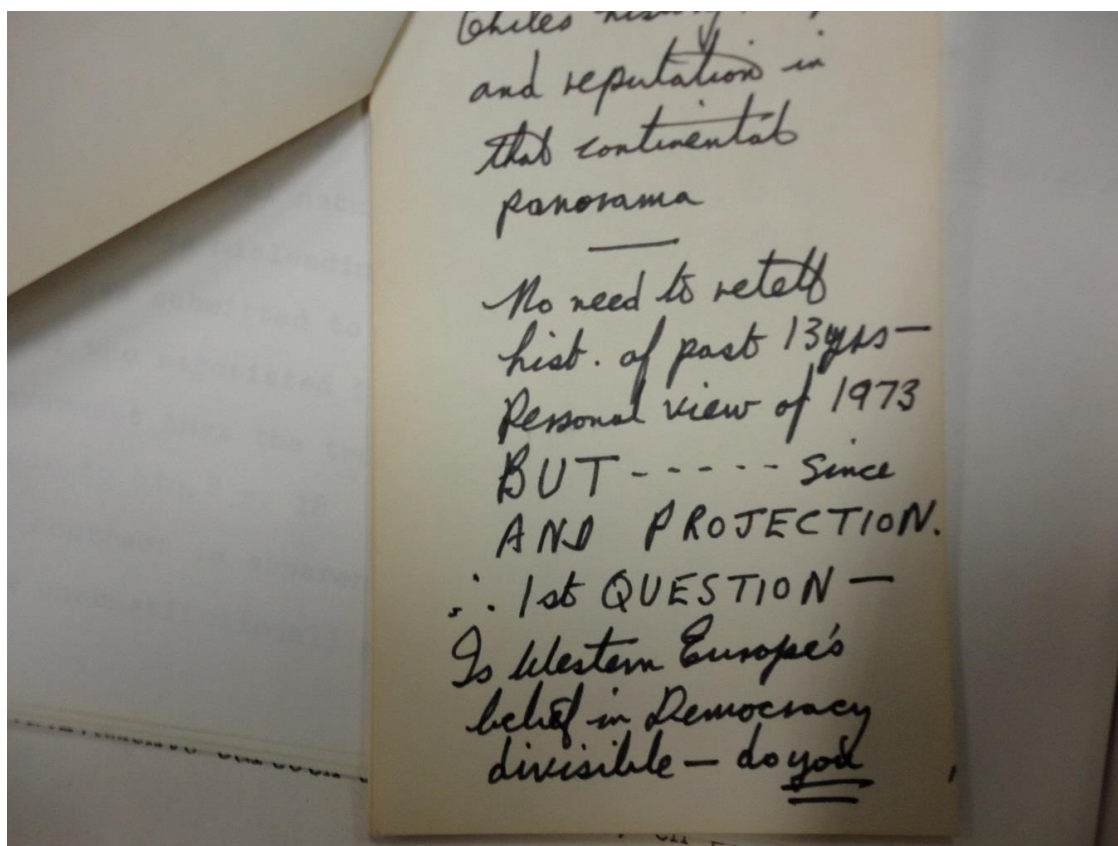 Chiles history
and reputation in
that continental
panorama
No need to retell
hist. of past 13yrs —
Personal view of 1973
BUT ------ Since
AND PROJECTION.
∴ 1st QUESTION —
Is Western Europe's
belief in Democracy
divisible — do you